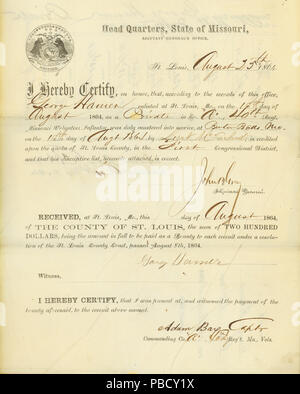 Head Quarters, State of Missouri,
ADJUTANT GENERAL'S OFFICE.
St. Louis, August 25th 1864
I Hereby Certify, on honor, that, according to the records of this office,
George Hamer enlisted at St. Louis, Mo., on the day of
August 1864, as a Private in Co. A. 40th Regt.
Missouri Volunteer Infantry, was duly mustered into service, at Mo.
on the day of Aug't 1864, is credited
upon the quota of St. Louis County, in the First Congressional District,
and that his descriptive list, attached, is correct.
Adjutant General.
RECEIVED, at St. Louis, Mo., this day of August 1864,
of THE COUNTY OF ST. LOUIS, the sum of TWO HUNDRED
DOLLARS, being the amount in full to be paid as a Bounty to each recruit under a resolution
of the St. Louis County Court, passed August 8th, 1864.
Witness,
I HEREBY CERTIFY, that I was present at, and witnessed the payment of the
bounty aforesaid, to the recruit above named.
Adam Bax, Capt.
Commanding Co. A. 40th Reg't. Mo. Vols.
alamy
Image ID: PBCY1X
www.alamy.com